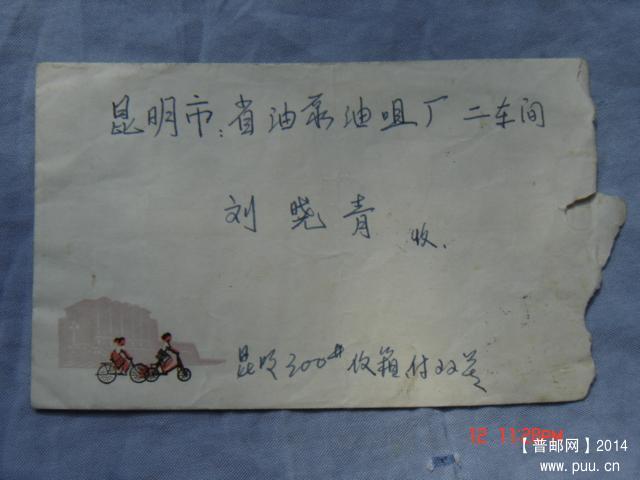 昆明市:省油泵油咀厂 二车间
刘晓青 收.
昆明300#收箱付
12 11:29PM
【普邮网】2014
www.puu.cn